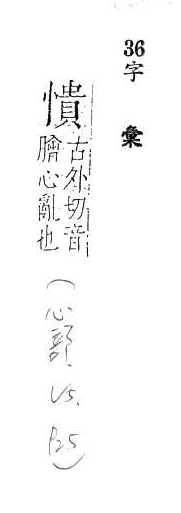 36字彙
憒
古外切音
膾心亂也
(心部.V5.P25)